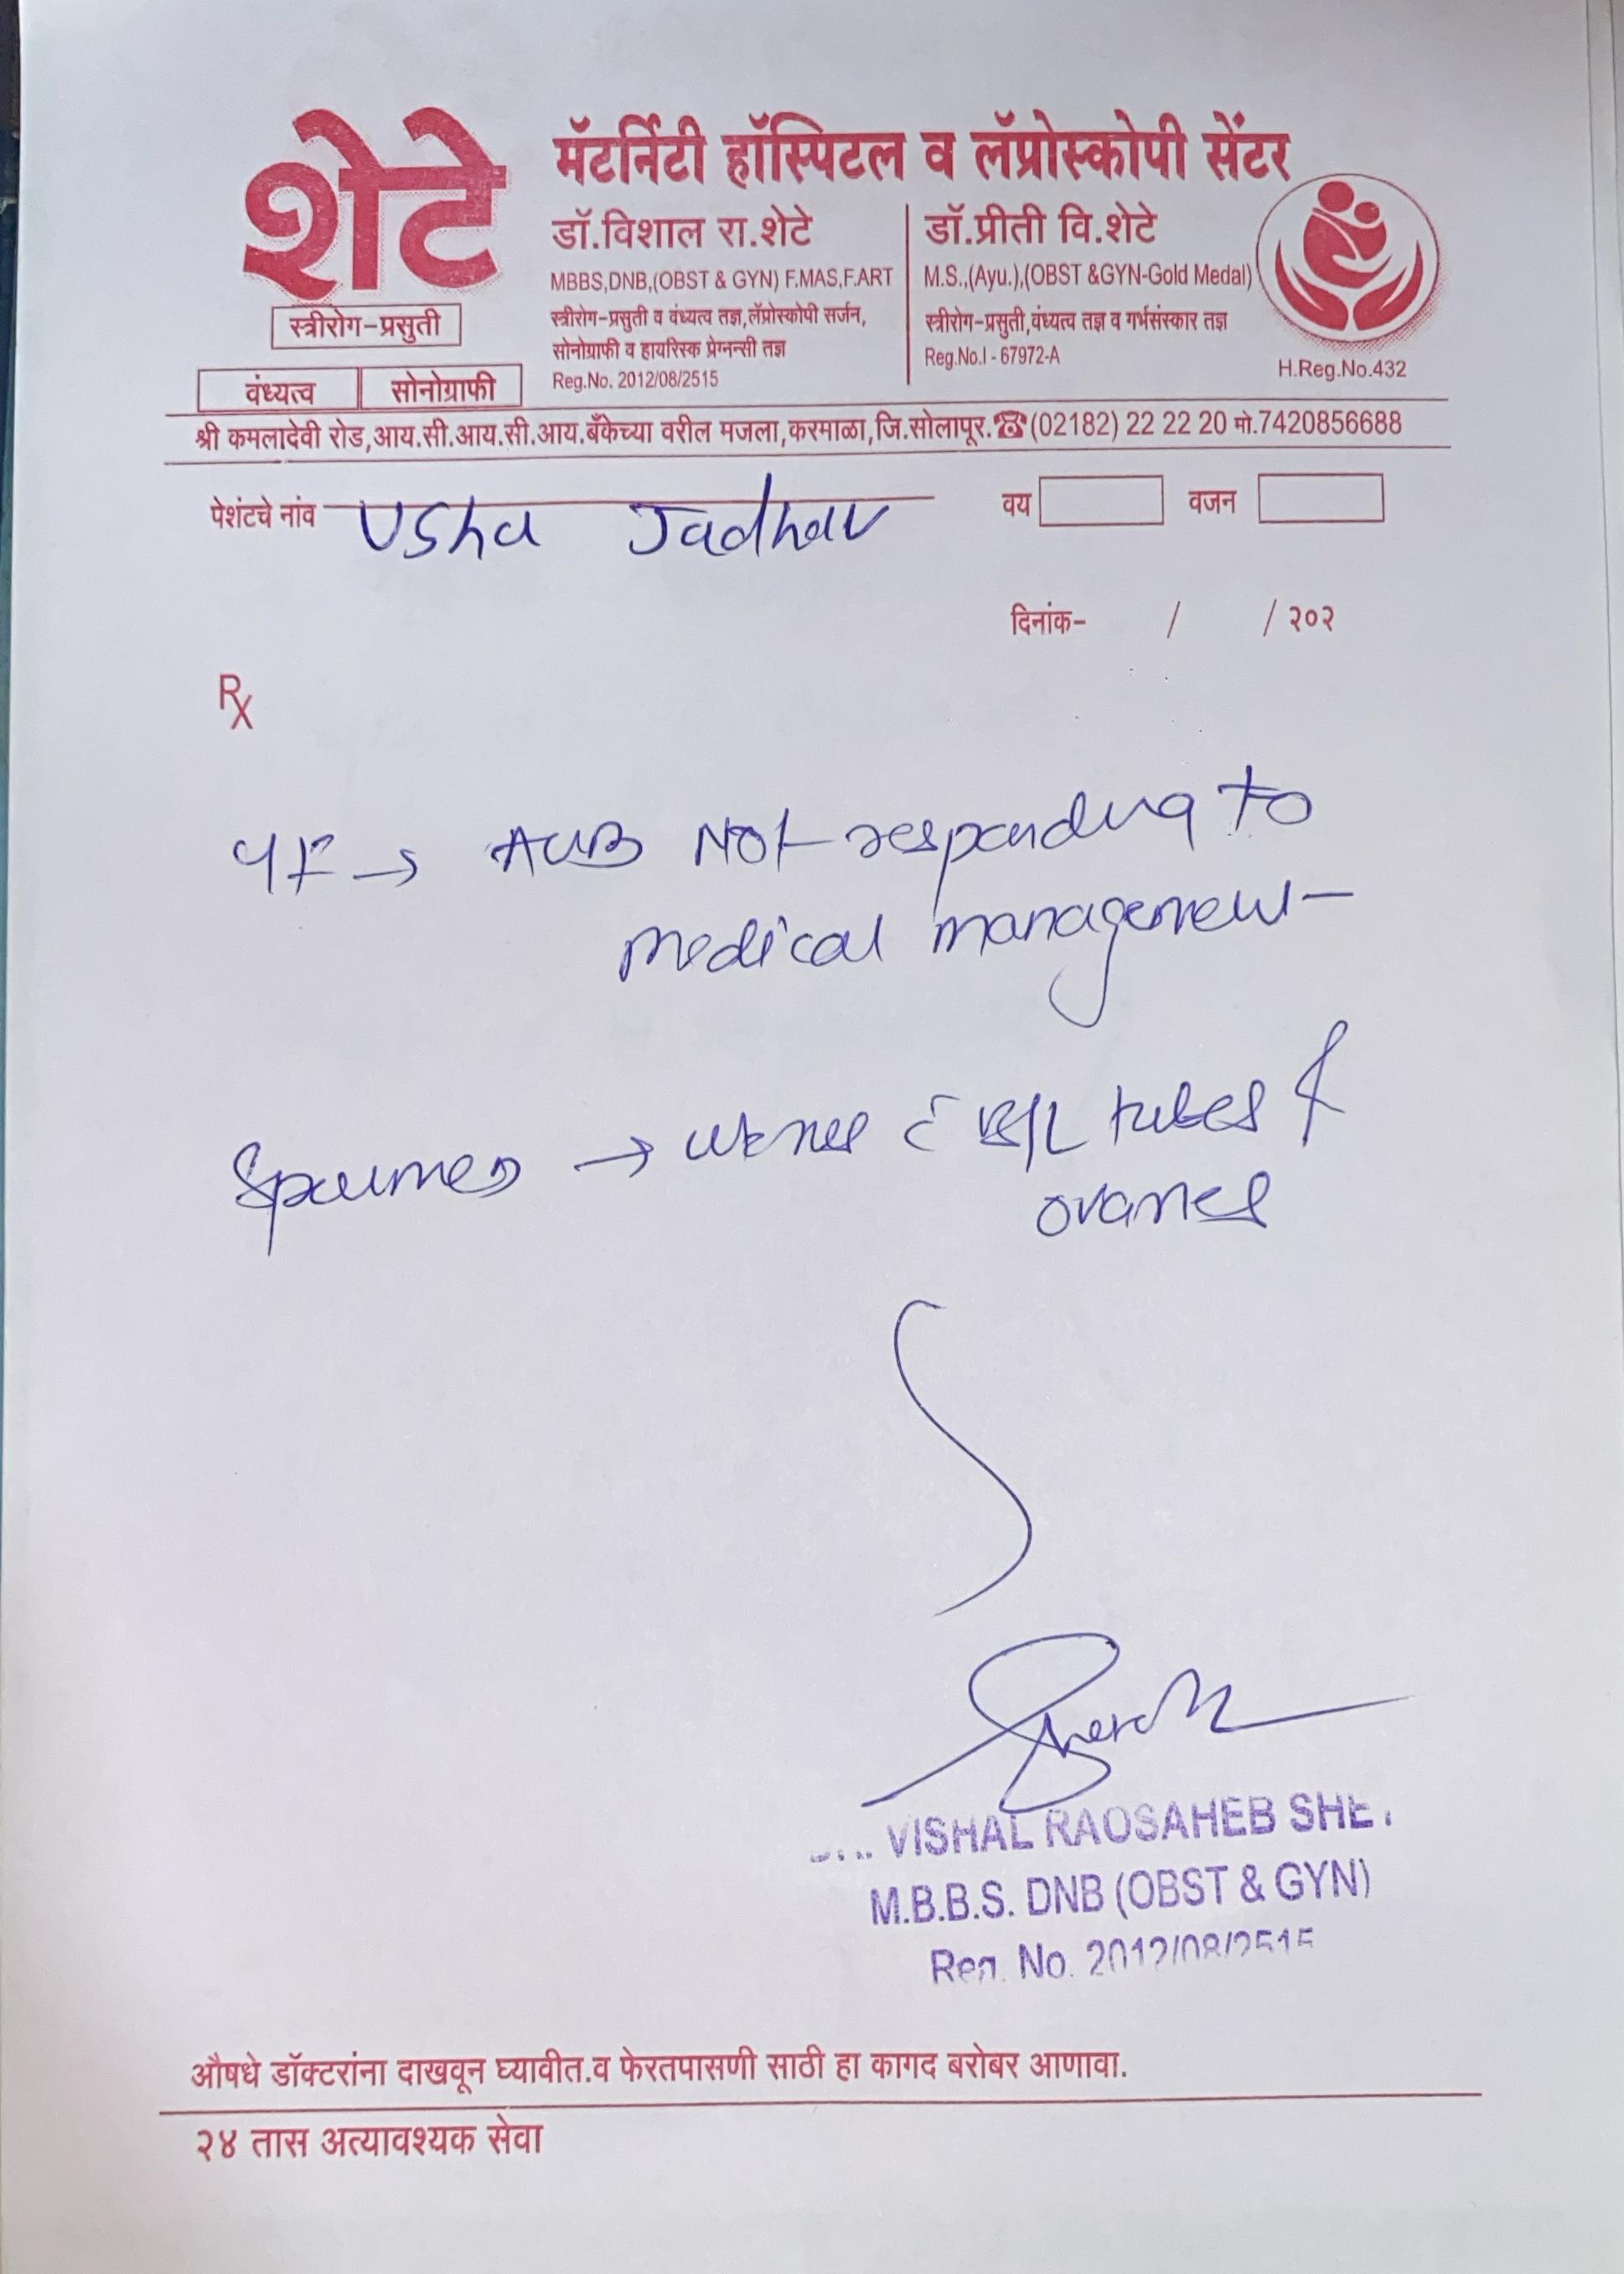 शेटे
मॅटर्निटी हॉस्पिटल व लॅप्रोस्कोपी सेंटर
स्त्रीरोग-प्रसुती
वंध्यत्व सोनोग्राफी
डॉ.विशाल रा.शेटे
MBBS,DNB,(OBST & GYN) F.MAS,F.ART
स्त्रीरोग-प्रसुती व वंध्यत्व तज्ञ,लॅप्रोस्कोपी सर्जन,
सोनोग्राफी व हायरिस्क प्रेग्नन्सी तज्ञ
Reg.No. 2012/08/2515
डॉ.प्रीती वि.शेटे
M.S.,(Ayu.),(OBST &GYN-Gold Medal)
स्त्रीरोग-प्रसुती,वंध्यत्व तज्ञ व गर्भसंस्कार तज्ञ
Reg.No.I - 67972-A
H.Reg.No.432
श्री कमलादेवी रोड,आय.सी.आय.सी.आय.बँकेच्या वरील मजला,करमाळा,जि.सोलापूर.☎(02182) 22 22 20 मो.7420856688
पेशंटचे नांव Usha Jadhav वय वजन
दिनांक- / / २०२
Rx
→ AUB Not responding to
medical management
Specimen → uterus c̄ B/L tubes &
ovaries
VISHAL RAOSAHEB
M.B.B.S. DNB (OBST & GYN)
Reg. No. 2012/08/2515
औषधे डॉक्टरांना दाखवून घ्यावीत.व फेरतपासणी साठी हा कागद बरोबर आणावा.
२४ तास अत्यावश्यक सेवा